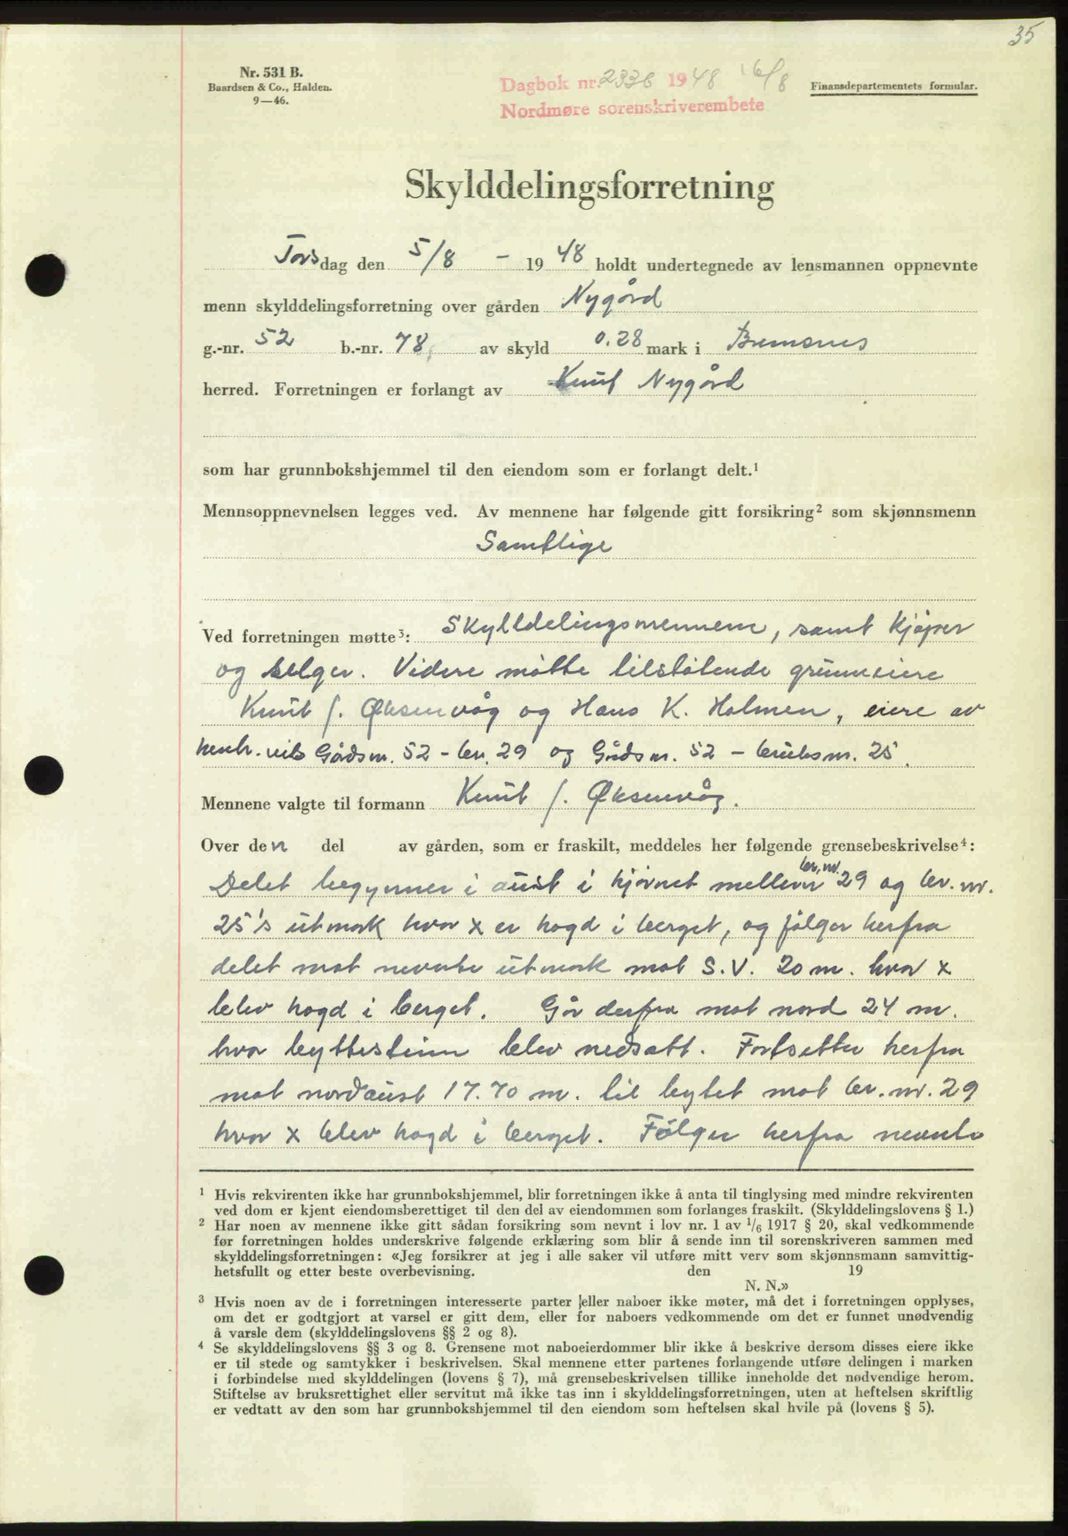 35
Nr. 531 B.
Baardsen & Co., Halden.
9—46.
Dagbok nr. 2336 1948 16/8
Nordmøre sorenskriverembete
Finansdepartementets formular.
Skylddelingsforretning
Torsdag den 5/8 - 1948 holdt undertegnede av lensmannen oppnevnte
menn skylddelingsforretning over gården Nygård
g.-nr. 52 b.-nr. 78, av skyld 0.28 mark i Bremsnes
herred. Forretningen er forlangt av Knut Nygård
som har grunnbokshjemmel til den eiendom som er forlangt delt.¹
Mennsoppnevnelsen legges ved. Av mennene har følgende gitt forsikring² som skjønnsmenn
Samtlige
Ved forretningen møtte³: Skylldelingsmennene, samt kjøper
og selger. Videre møtte tilstøtende grunneiere
Knut J. Øksenvåg og Hans K. Holmen, eiere av
henh. vis Gårdsnr. 52 - br. 29 og Gårdsnr. 52 - bruksnr. 25.
Mennene valgte til formann Knut J. Øksenvåg.
Over den del av gården, som er fraskilt, meddeles her følgende grensebeskrivelse⁴:
Delet begynner i aust i hjørnet mellem br. nr. 29 og br. nr.
25's utmark hvor x er hogd i berget, og følger herfra
delet mot nevnte utmark mot S.V. 20 m. hvor x
blev hogd i berget. Går derfra mot nord 24 m.
hvor byttesteinn blev nedsatt. Fortsetter herfra
mot nordaust 17.70 m. til bytet mot br. nr. 29
hvor x blev hogd i berget. Følger herfra nevnte
¹ Hvis rekvirenten ikke har grunnbokshjemmel, blir forretningen ikke å anta til tinglysing med mindre rekvirenten
ved dom er kjent eiendomsberettiget til den del av eiendommen som forlanges fraskilt. (Skylddelingslovens § 1.)
² Har noen av mennene ikke gitt sådan forsikring som nevnt i lov nr. 1 av 1/6 1917 § 20, skal vedkommende
før forretningen holdes underskrive følgende erklæring som blir å sende inn til sorenskriveren sammen med
skylddelingsforretningen: «Jeg forsikrer at jeg i alle saker vil utføre mitt verv som skjønnsmann samvittig-
hetsfullt og etter beste overbevisning. den 19
N. N.»
³ Hvis noen av de i forretningen interesserte parter eller naboer ikke møter, må det i forretningen opplyses,
om det er godtgjort at varsel er gitt dem, eller for naboers vedkommende om det er funnet unødvendig
å varsle dem (skylddelingslovens §§ 2 og 8).
⁴ Se skylddelingslovens §§ 3 og 8. Grensene mot naboeierdommer blir ikke å beskrive dersom disses eiere ikke
er til stede og samtykker i beskrivelsen. Skal mennene etter partenes forlangende utføre delingen i marken
i forbindelse med skylddelingen (lovens § 7), må grensebeskrivelsen tillike inneholde det nødvendige herom.
Stiftelse av bruksrettighet eller servitut må ikke tas inn i skylddelingsforretningen, uten at heftelsen skriftlig
er vedtatt av den som har grunnbokshjemmel til den eiendom som heftelsen skal hvile på (lovens § 5).